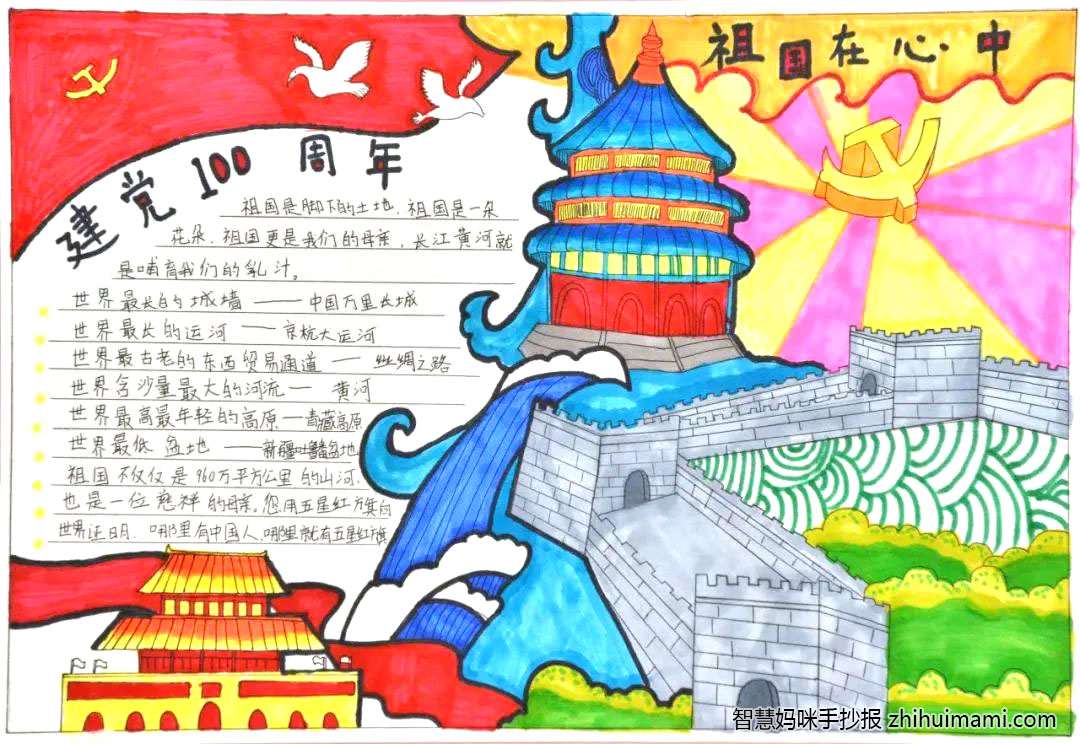 祖国在心中
建党100周年
祖国是脚下的土地，祖国是一朵
花朵，祖国更是我们的母亲，长江黄河就
是哺育我们的乳汁。
世界最长的城墙——中国万里长城
世界最长的运河——京杭大运河
世界最古老的东西贸易通道——丝绸之路
世界含沙量最大的河流—黄河
世界最高最年轻的高原—青藏高原
世界最低盆地——新疆吐鲁番盆地
祖国不仅仅是960万平方公里的山河，
也是一位慈祥的母亲。您用五星红旗向
世界证明，哪里有中国人，哪里就有五星红旗
智慧妈咪手抄报 zhihuimami.com